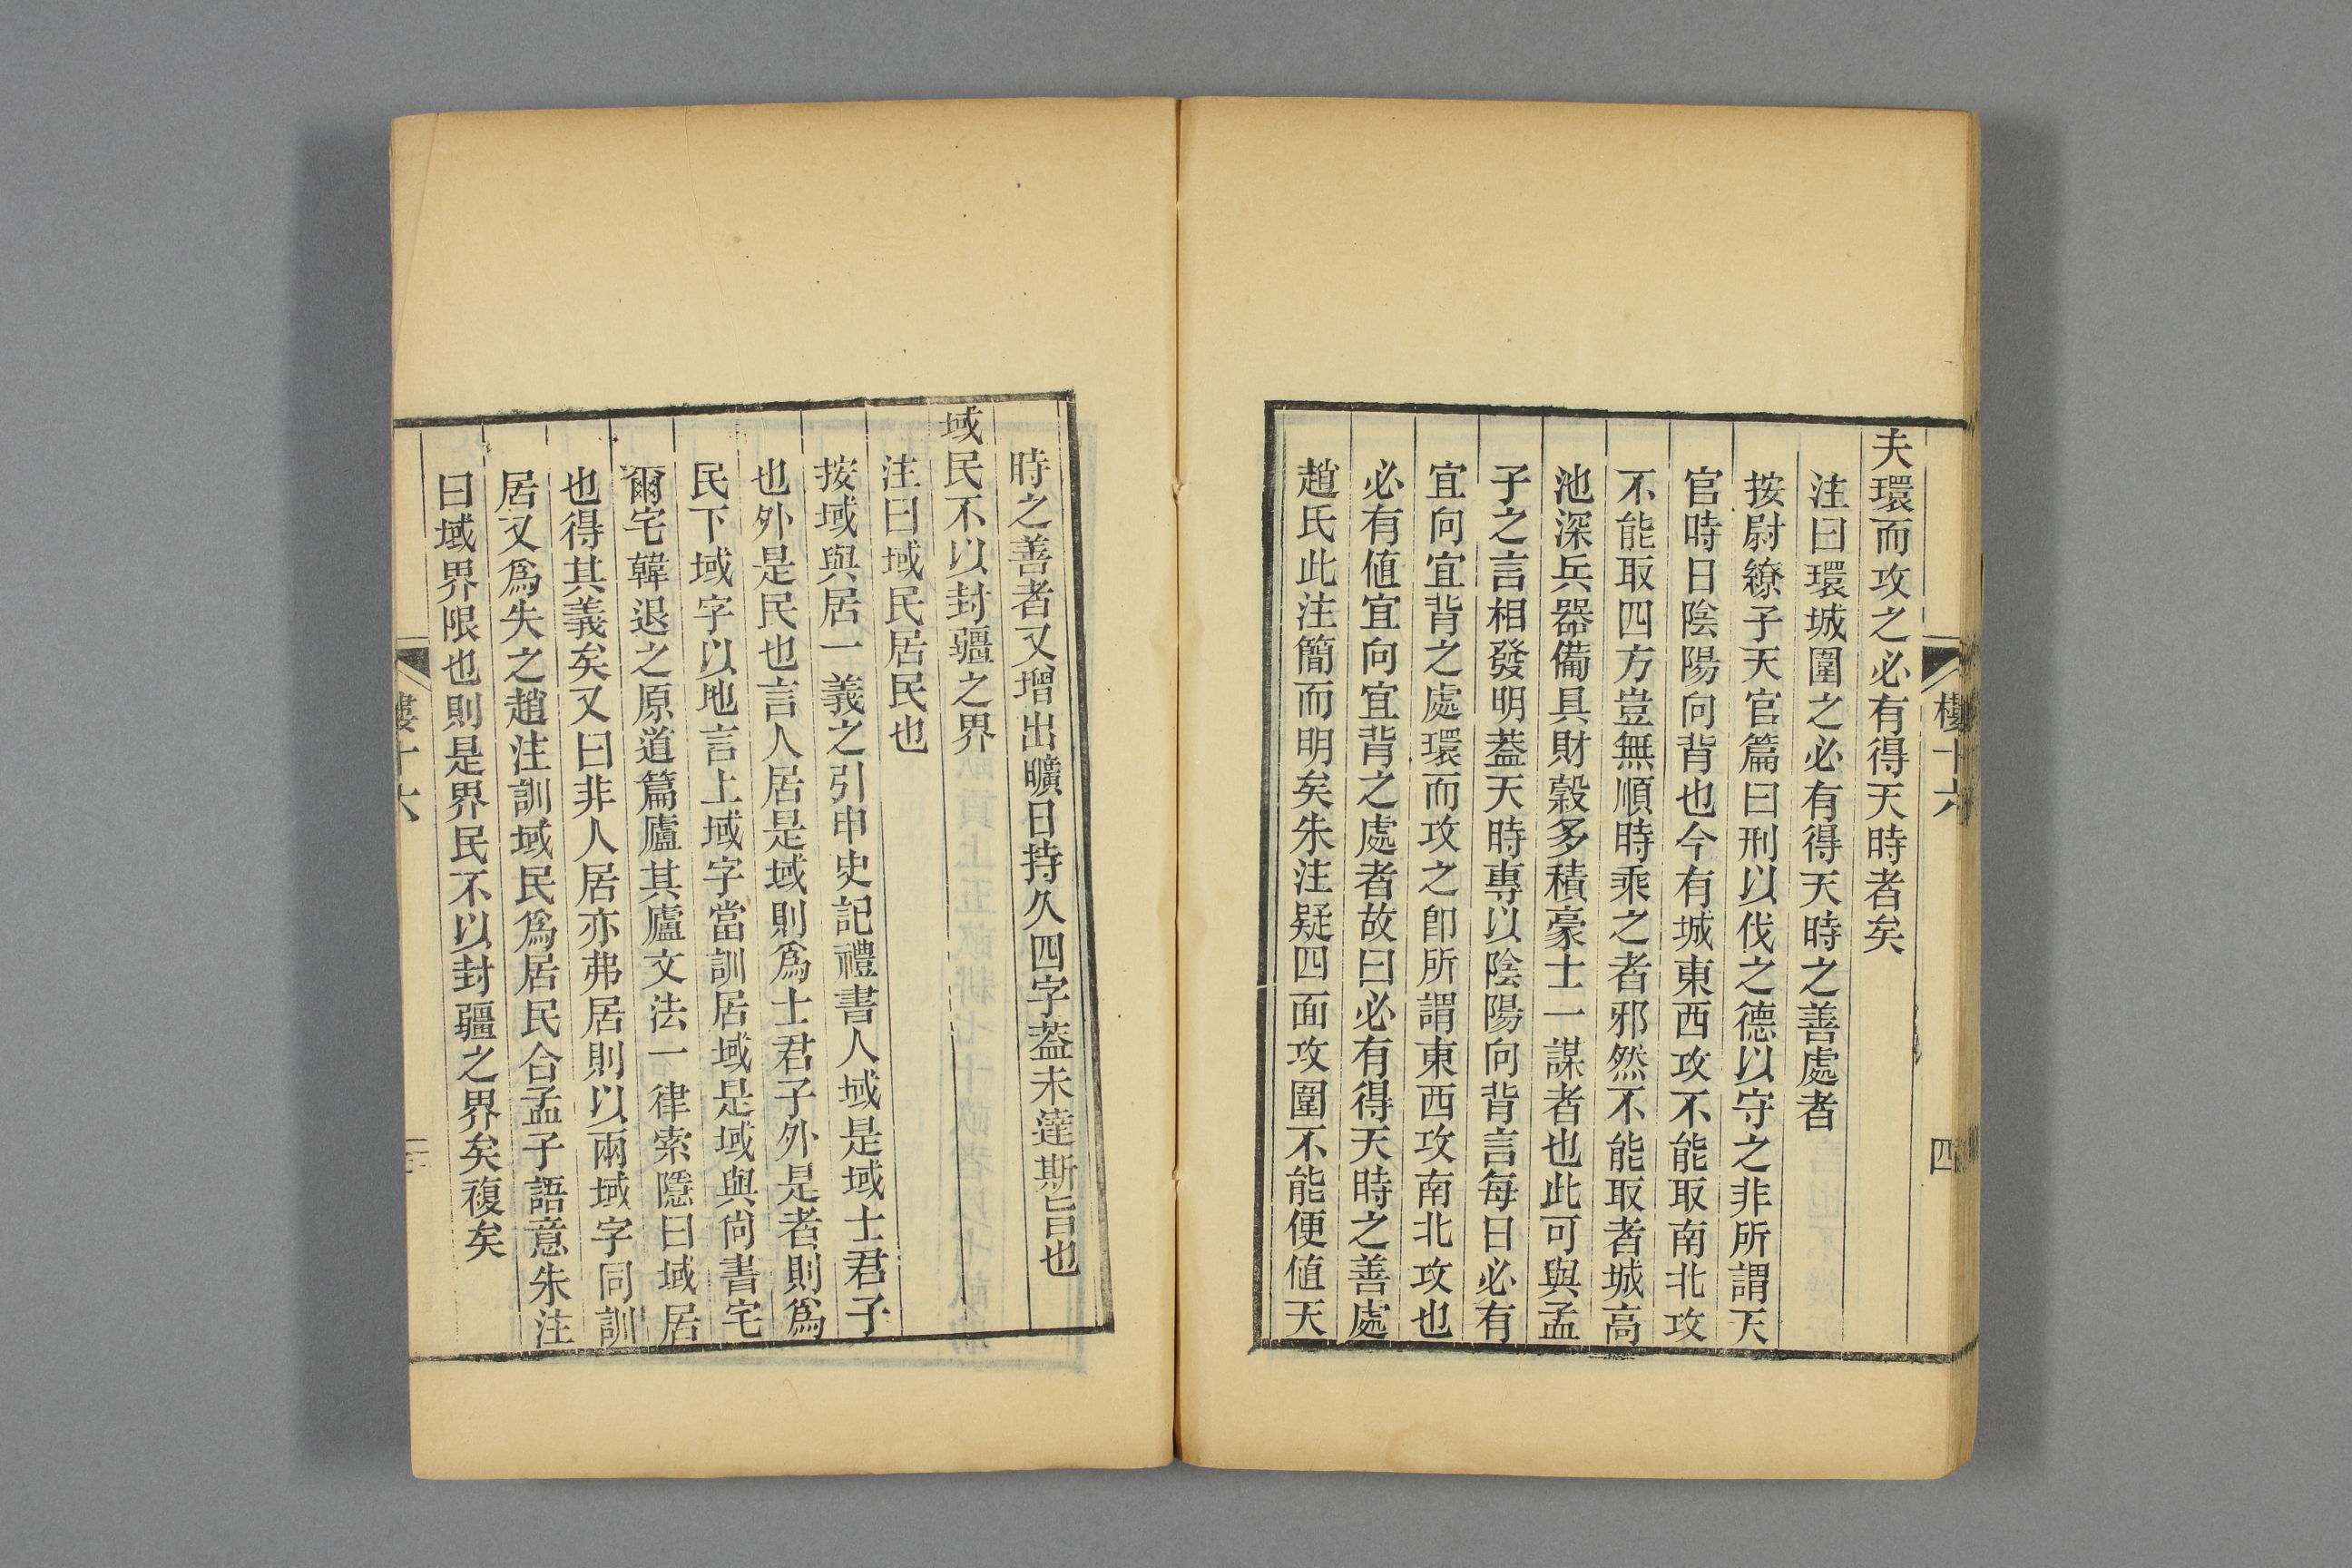 夫環而攻之必有得天時者矣
注曰環城圍之必有得天時之善處者
按尉繚子天官篇曰刑以伐之德以守之非所謂天
官時日陰陽向背也今有城東西攻不能取南北攻
不能取四方豈無順時乘之者邪然不能取者城高
池深兵器備具財穀多積豪士一謀者也此可與孟
子之言相發明葢天時專以陰陽向背言每日必有
宜向宜背之處環而攻之卽所謂東西攻南北攻也
必有值宜向宜背之處者故曰必有得天時之善處
趙氏此注簡而明矣朱注疑四面攻圍不能便值天
樓十六
四
時之善者又增出曠日持久四字葢未達斯旨也
域民不以封疆之界
注曰域民居民也
按域與居一義之引申史記禮書人域是域士君子
也外是民也言人居是域則爲士君子外是者則爲
民下域字以地言上域字當訓居域是域與尙書宅
爾宅韓退之原道篇廬其廬文法一律索隱曰域居
也得其義矣又曰非人居亦弗居則以兩域字同訓
居又爲失之趙注訓域民爲居民合孟子語意朱注
曰域界限也則是界民不以封疆之界矣複矣
樓十六